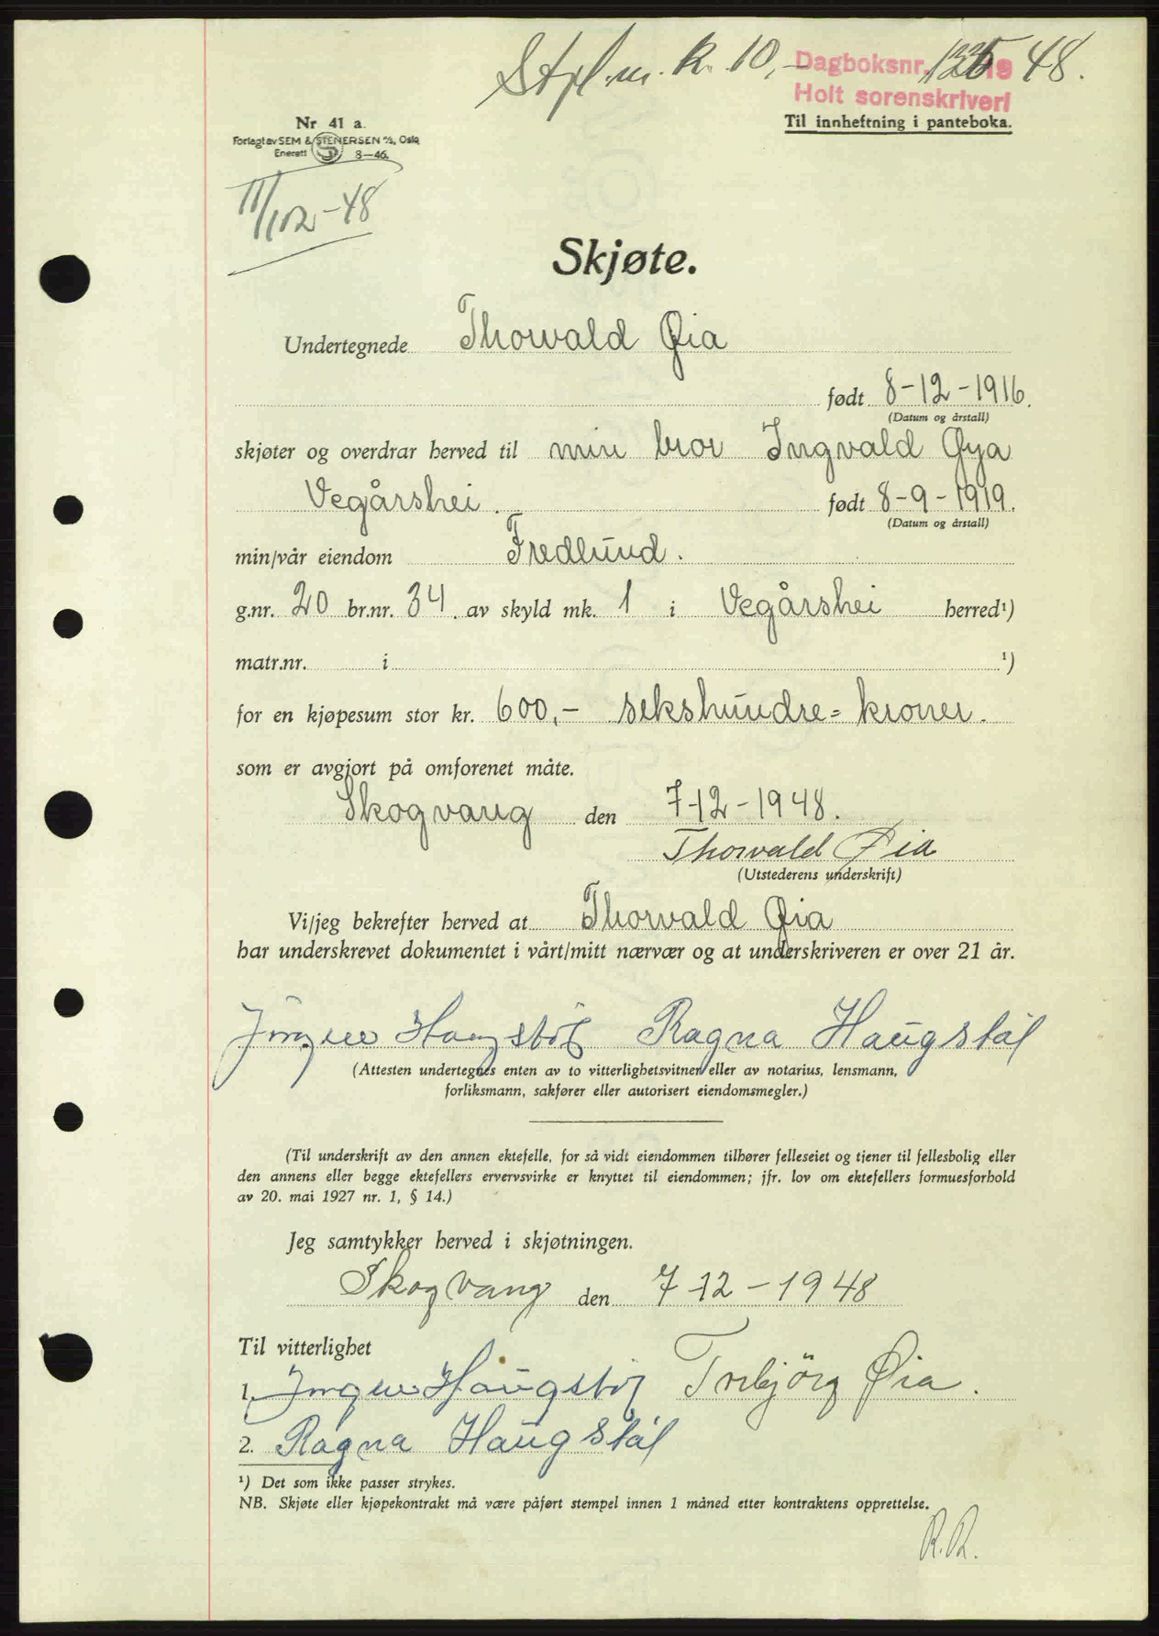 Stpl.m. k. 10,- Dagboksnr. 19 48.
Holt sorenskriveri
Til innheftning i panteboka.
Nr 41 a.
Forlagt av SEM & STENERSEN A/S, Oslo
Enerett 8—46.
11/12-48
Skjøte.
Undertegnede Thorvald Øia
født 8-12-1916.
(Datum og årstall)
skjøter og overdrar herved til min bror Ingvald Øya
Vegårshei. født 8-9-1919.
(Datum og årstall)
min/vår eiendom Fredlund.
g.nr. 20 br.nr. 34. av skyld mk. 1 i Vegårshei herred¹)
matr.nr. i ¹)
for en kjøpesum stor kr. 600,- sekshundre= kroner.
som er avgjort på omforenet måte.
Skogvang den 7-12-1948.
Thorvald Øia
(Utstederens underskrift)
Vi/jeg bekrefter herved at Thorvald Øia
har underskrevet dokumentet i vårt/mitt nærvær og at underskriveren er over 21 år.
Jörgen Ragna
(Attesten undertegnes enten av to vitterlighetsvitner eller av notarius, lensmann,
forliksmann, sakfører eller autorisert eiendomsmegler.)
(Til underskrift av den annen ektefelle, for så vidt eiendommen tilhører felleseiet og tjener til fellesbolig eller
den annens eller begge ektefellers ervervsvirke er knyttet til eiendommen; jfr. lov om ektefellers formuesforhold
av 20. mai 1927 nr. 1, § 14.)
Jeg samtykker herved i skjøtningen.
Skogvang den 7-12-1948
Til vitterlighet
1. Jörgen Øia.
2. Ragna
¹) Det som ikke passer strykes.
NB. Skjøte eller kjøpekontrakt må være påført stempel innen 1 måned etter kontraktens opprettelse.
R.R.